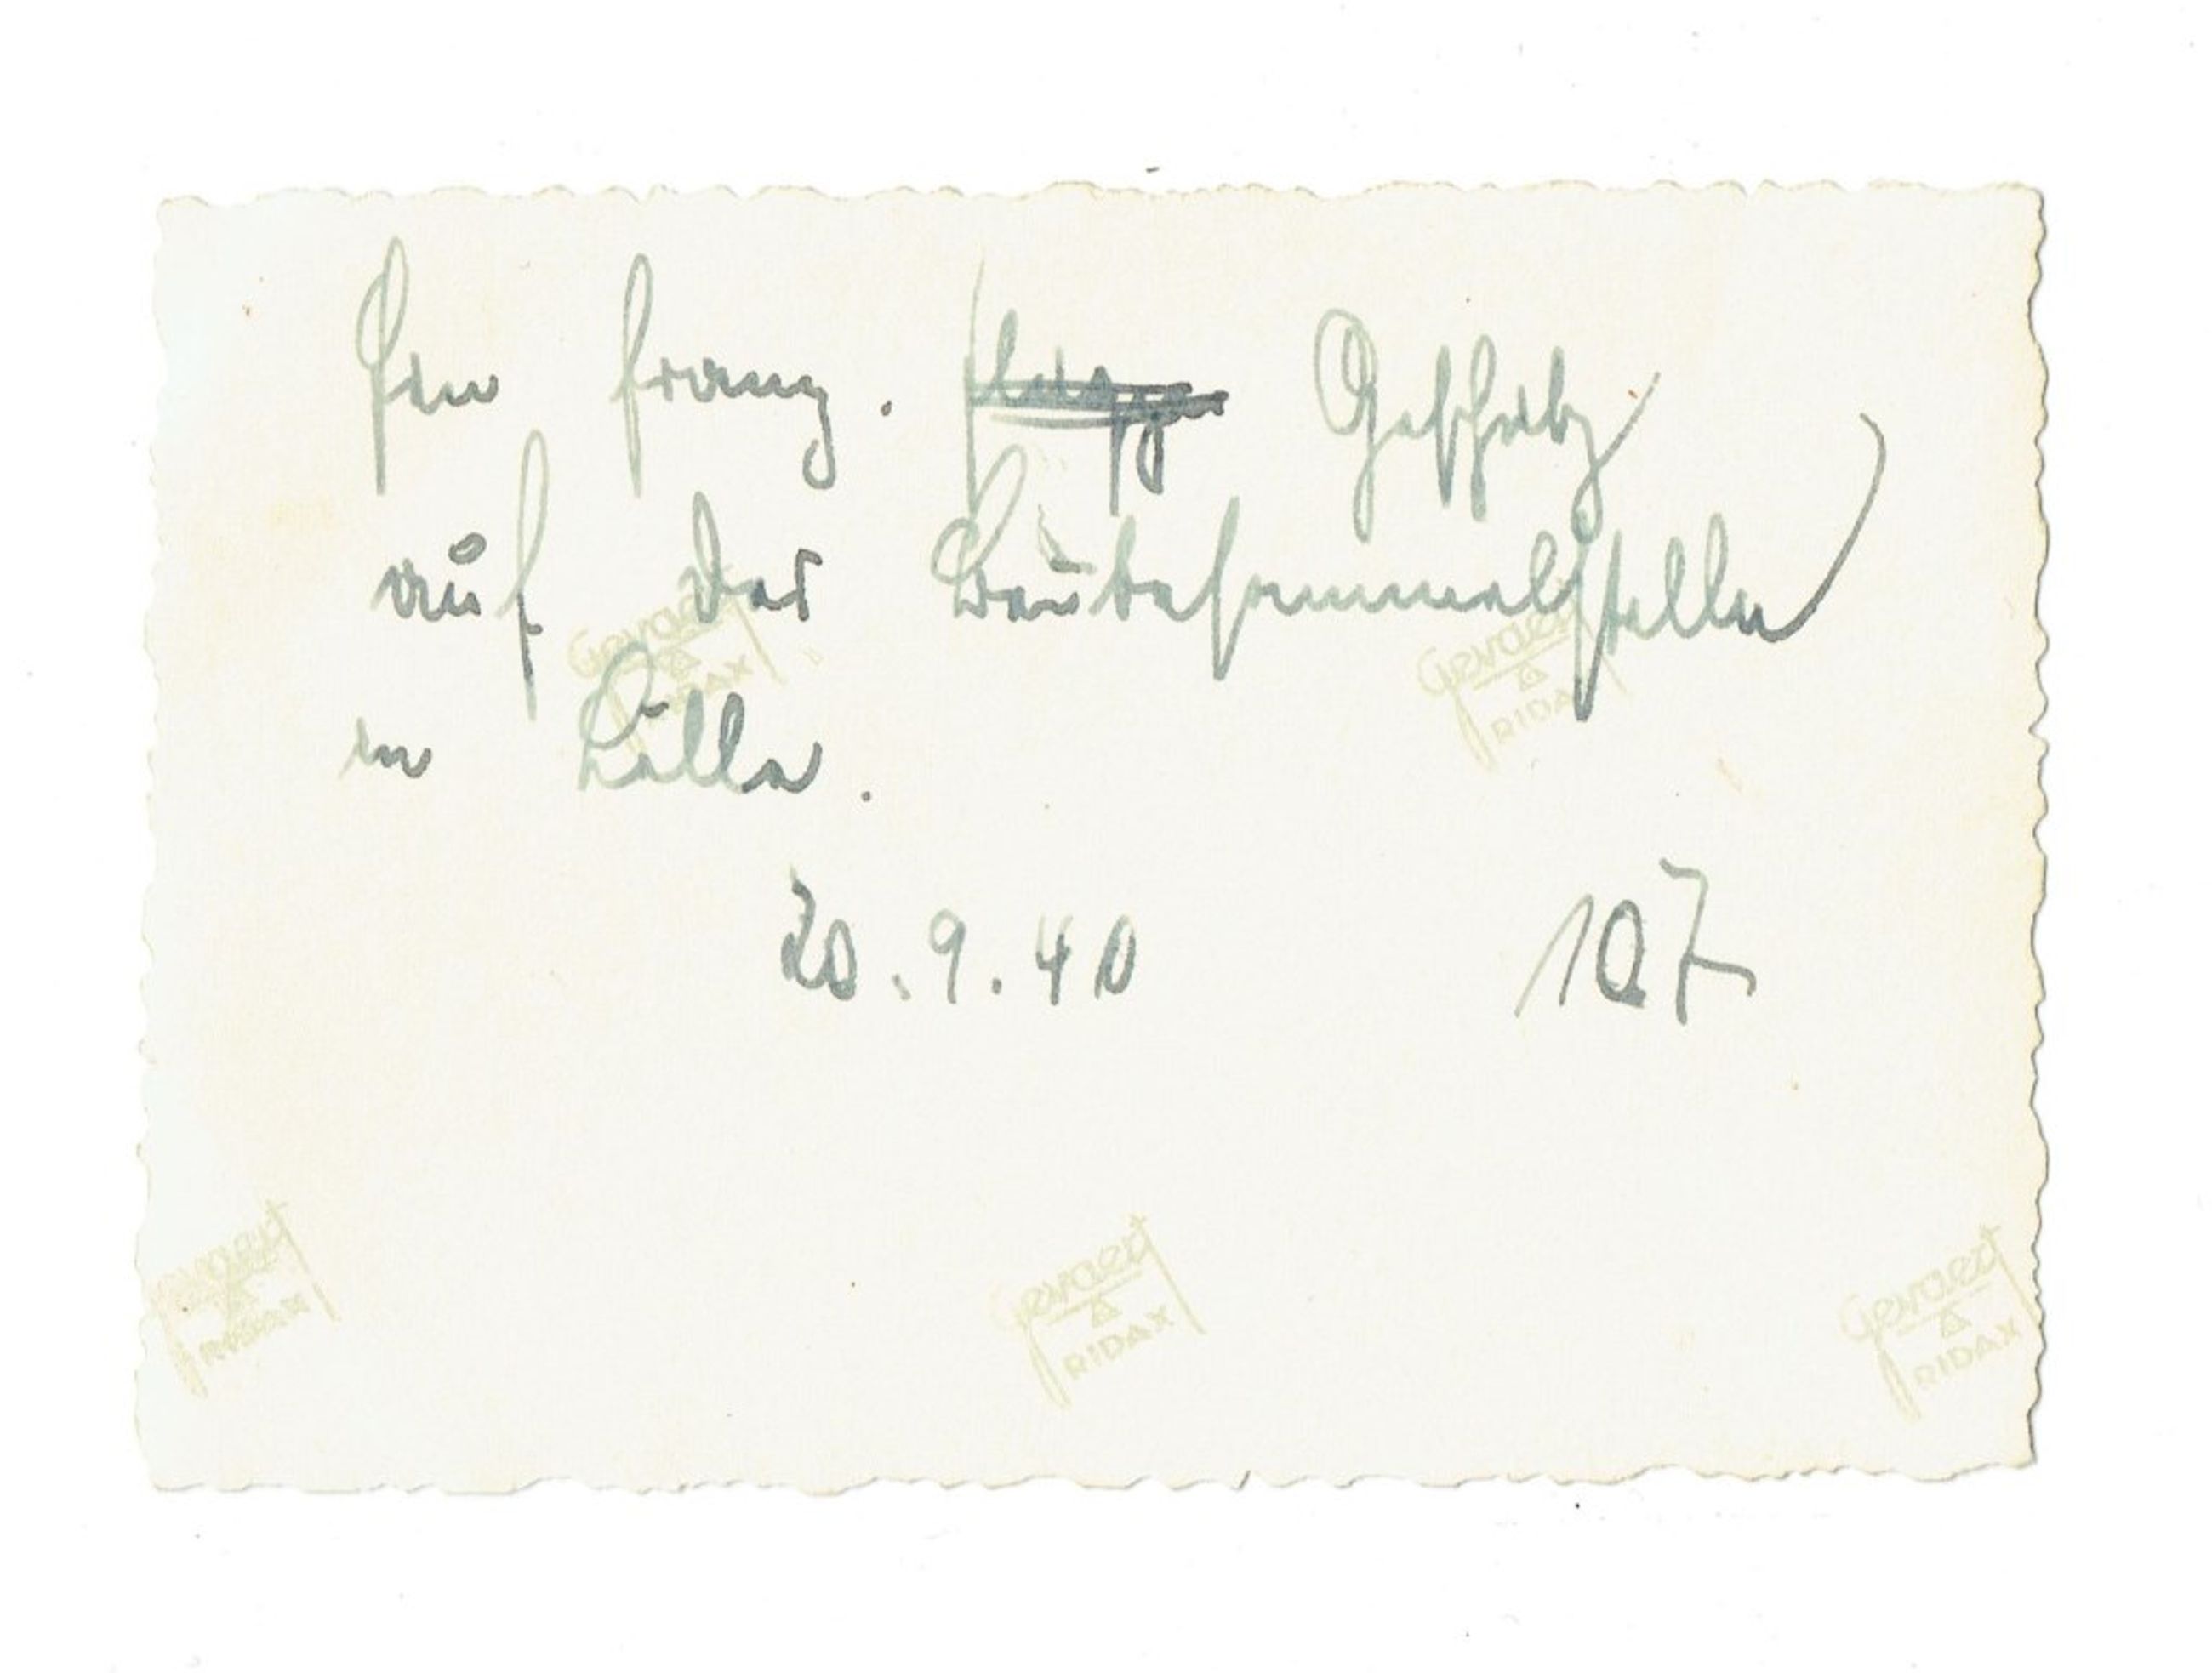 Ein franz. Geschütz
auf der Beutesammelstelle
in Lille.
20.9.40 107
Gevaert
RIDAX
Gevaert
RIDAX
Gevaert
RIDAX
Gevaert
RIDAX
Gevaert
RIDAX